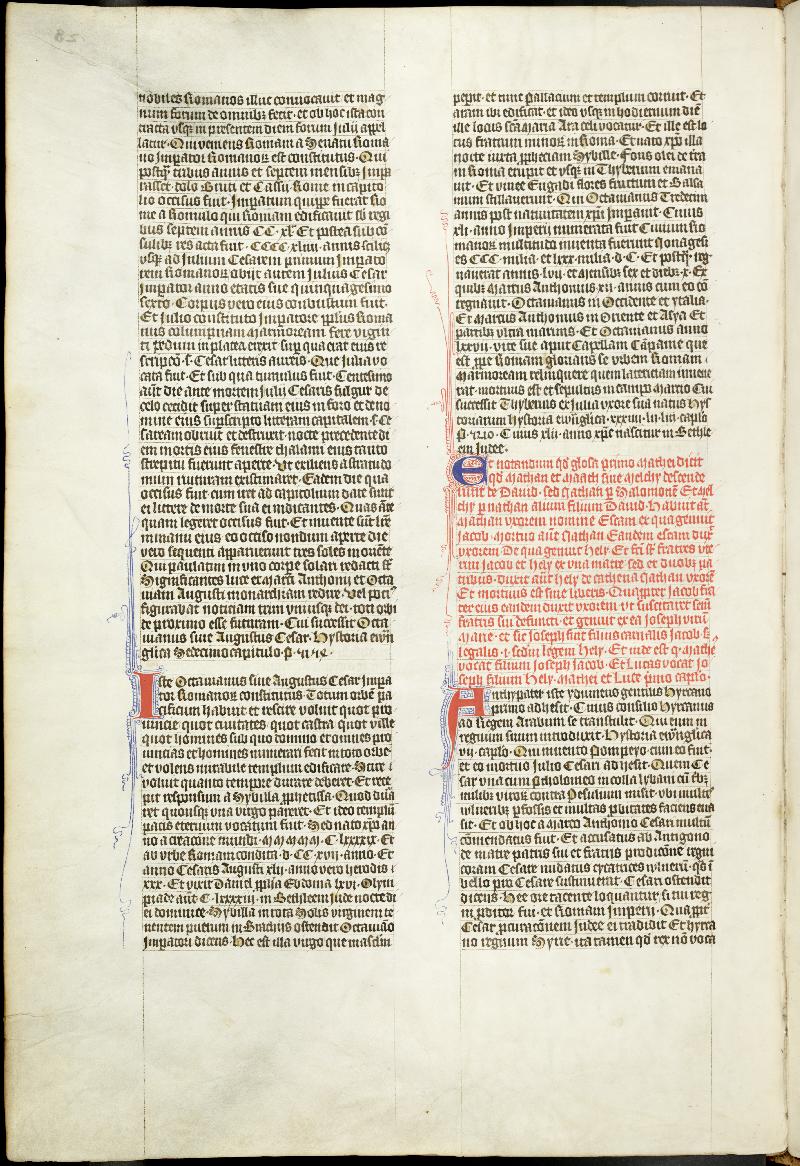 nobiles Romanos illuc conuocauit et mag
num forum de omnibus fecit · et ob hoc ista con
tracta vsque in presentem diem forum Julii apel
latur · Qui veniens Romam a Senatu Roma
no Imperator Romanorum est constitutus · Qui
postquam tribus annis et septem mensibus Impe
rasset · dolo Bruti et Cassii · Rome in capito
lio occisus fuit · Imperatum quippe fuerat Ro
me a Romulo qui Romam edificauit sub regi
bus septem annis CC · xl · Et postea sub co
sulibus res acta fuit · CCCC · xliiii · annis scilicet
vsque ad Julium Cesarem primum Imperato
rem Romanorum obiit autem Julius Cesar
Imperator anno etatis sue quinquagesimo
sexto · Corpus vero eius conbustum fuit ·
Et Julio constituto Imperatore populus Roma
nus columpnam Marmoream fere viginti
ti pedum in platea erexit super qua erat eius re
scriptio · s · Cesar literis aureis · Que Julia vo
cata fuit · Et sub qua tumulus fuit · Centesimo
aut die ante mortem Julii Cesaris fulgur de
celo cecidit super statuam eius in foro et de no
mine eius supscripto literam capitalem · s · Ce
saream obruit et destruxit · nocte precedente di
em mortis eius fenestre thalami eius tanto
strepitu fuerunt aperte · Vt exiliens a strato do
mum ruituram existimaret · Eadem die qua
occisus fuit cum iret ad capitolium date sunt
ei littere de morte sua ei indicantes · Quas ante
quam legeret occisus fuit · Et inuente sunt littere in
manu eius eo occiso nondum aperte die
vero sequenti apparuerunt tres soles in oriente
Qui paulatim in vno corpore solari redacti sunt
Significantes Luce et Marci Anthonij et Octa
uiani Augusti monarchiam redire · Vel poti
figurabat noticiam trini vniusque dei · toti orbi
de proximo esse futuram · Cui successit Octa
uianus siue Augustus Cesar · Hystoria ewan
glica Sedecimo capitulo
Iste Octauianus siue Augustus Cesar Impa
tor Romanorum constitutus · Totum orbem pa
cificum habuit et rescire voluit quot pro
uincie quot ciuitates · quot castra quot ville
quot homines sub quo domino et omnes pro
uincias et homines numerari fecit in toto orbe ·
et volens mutabile templum edificare · Scire
voluit quanto tempore durare deberet · Et rece
pit responsum a Sybilla prophetissa · Quod dura
ret quousque vna virgo pareret · Et ideo templum
pacis eternum vocatum fuit · Sed nato Christo an
no a creacione mundi · MMMMM · C · lxxxxix · Et
ab vrbe Romam condita · d · CC · xvii · anno · Et
annis Cesaris Augusti xlij · anno vero herodis
xxx · Et vixit Daniel prophecia Ebdoma lxvi · Olym
piade aut C · lxxxxiii · in Bethleem Jude nocte di
ei dominice · Sybilla in rota Solis virginem te
nentem puerum in Brachiis ostendit Octauiano
Imperatori dicens · Hec est illa virgo que masculum
peperit · et tunc Pallacium et templum corruit · Et
aram ibi edificat · et ideo vsque in hodiernum diem
ille locus sancta Maria Ara celi vocatur · Et ille est lo
cus fratrum minorum in Roma · Et nato Christo illa
nocte iuxta propheciam Sybille · Fons olei de terra
in Roma erupit et vsque in Thyberum emana
uit · Et vinee Engadi flores fructum et Balsa
mum stillauerunt · Qui Octauianus Tredecim
annis post natiuitatem Christi Imperauit · Cuius
xli · anno Imperii numerata fuit Ciuium Ro
manorum multitudo inuenta fuerunt Nonagesi
es CCC · milia · et lxxx · milia · d · C · Et postquam reg
nauerat annis · lvii · et Mensibus sex et diebus · x · Ex
quibus Marcus Anthonius · xii · annis cum eo con
regnauit · Octauianus in Occidente et ytalia ·
Et Marcus Anthonius in Oriente et Asya · Et
partibus vltra marinis · Et Octauianus anno
lxxvij · vite sue aput Capellam Campanie que
est prope Romam glorians se vrbem Romam
Marmoream relinquere quem latericiam inuene
rat · mortuus est et sepultus in campo Marcio Cui
successit Thyberius ex Julia vxore sua natus Hys
toriarum hystoria ewanglica · xxxiii · lii · liii · capitulo
Cuius xlii · anno Christus nascitur in Bethle
em Judee ·
Et notandum quod glosa primo Mathei dicit
quod Mathan et Matath siue Melchy descende
runt de Dauid · sed Mathan per Salomonem Et Mel
chy per Nathan alium filium Dauid · Habuit autem
Mathan vxorem nomine Escam ex qua genuit
Jacob · Mortuo autem Mathan Eandem escam duxit
vxorem · De qua genuit Hely · Et sic sunt fratres vte
rini Jacob et Hely ex vna matre · sed et duobus pa
tribus · duxit autem Hely de cathena Mathan vxorem
Et mortuus est sine liberis · Quapropter Jacob fra
ter eius eandem duxit vxorem · vt suscitaret semen
fratris sui defuncti · et genuit ex ea Joseph virum
Marie · et sic Joseph fuit filius carnalis Jacob · sed
legalis · i · secundum legem Hely · Et inde est quod Matheus
vocat filium Joseph Jacob · Et Lucas vocat Jo
seph filium Hely · Mathei et Luce primo capitulo ·
Antypater iste ydumeus gentilis Hyrcano
primo adhesit · Cuius consilio Hyrcanus
ad Regem Arabum se transtulit · Qui eum in
regnum suum introduxit · Hystoria ewanglica
vii · capitulo · Qui inuento Pompeyo · cum eo fuit ·
et eo mortuo Julio Cesari adhesit · Quem Ce
sar vna cum Ptholomeo incolla lybani cum tribus
milibus virorum contra Pelusium misit · vbi multis
vulneribus perfossis et multas probitates faciens eua
sit · Et ob hoc a Marco Anthonio Cesari multum
commendatus fuit · Et accusatus ab Antigono
de matre patris sui et fratris prodicione regni
coram Cesare nudatus cycatrices vulnerum · quas in
bello pro Cesare sustinuerat · Cesari ostendit
dicens · Hee ore tacente loquantur · si tui reg
ni proditor fui · et Romani Imperii · Quapropter
Cesar procuracionem Judee ei tradidit Et hyrca
no regnum Syrie · ita tamen quod rex non voca